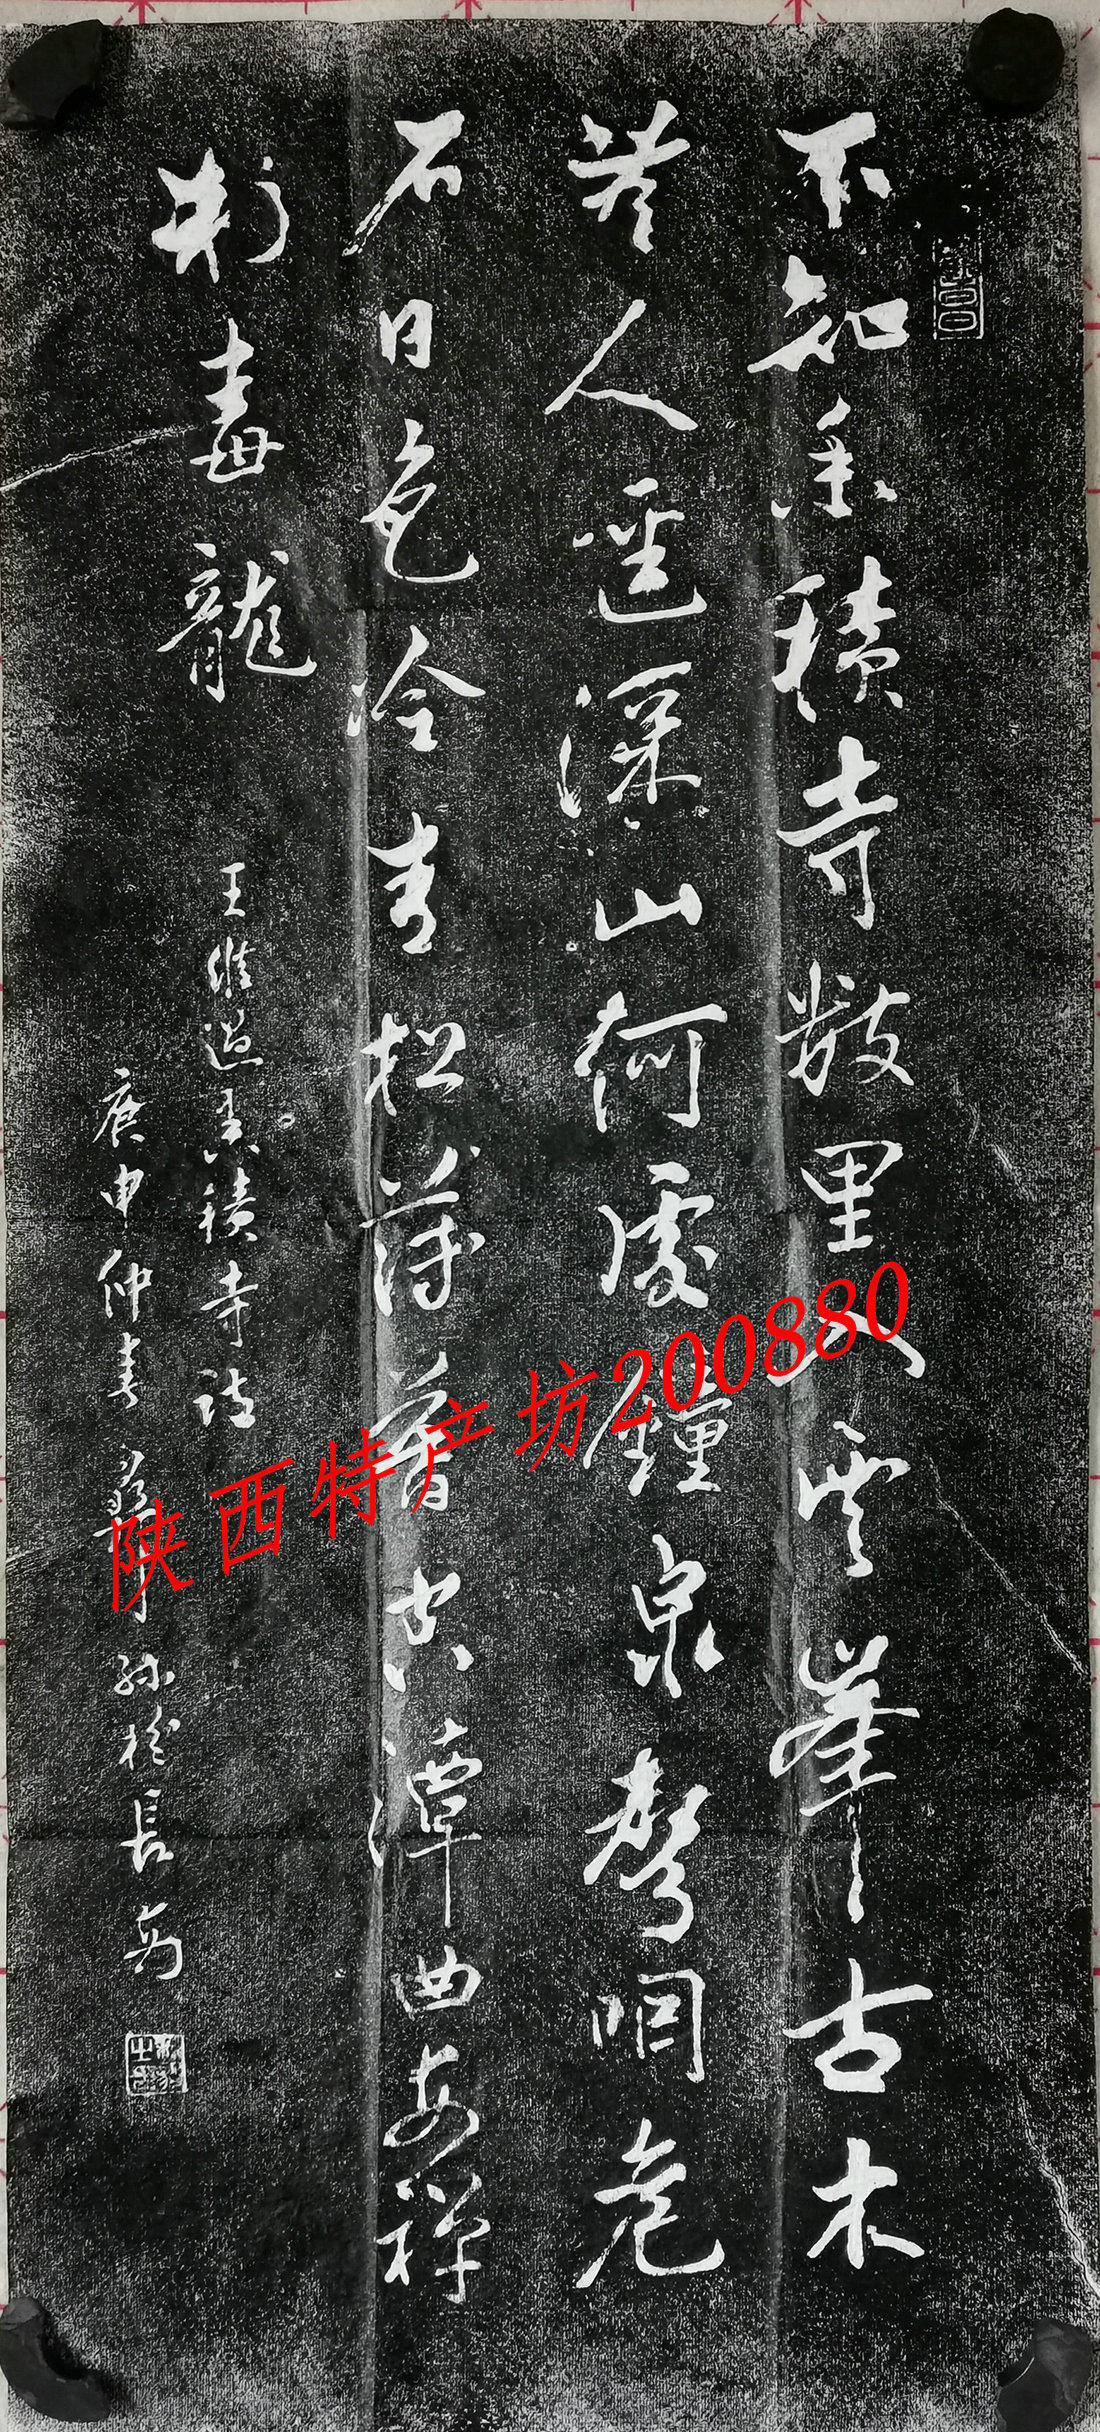 不知香積寺數里入雲峯古木
無人逕深山何處鐘泉聲咽危
石日色冷青松薄暮空潭曲安禪
制毒龍
王維過香積寺詩
庚申仲春
孫
長安
陕西特产坊200880